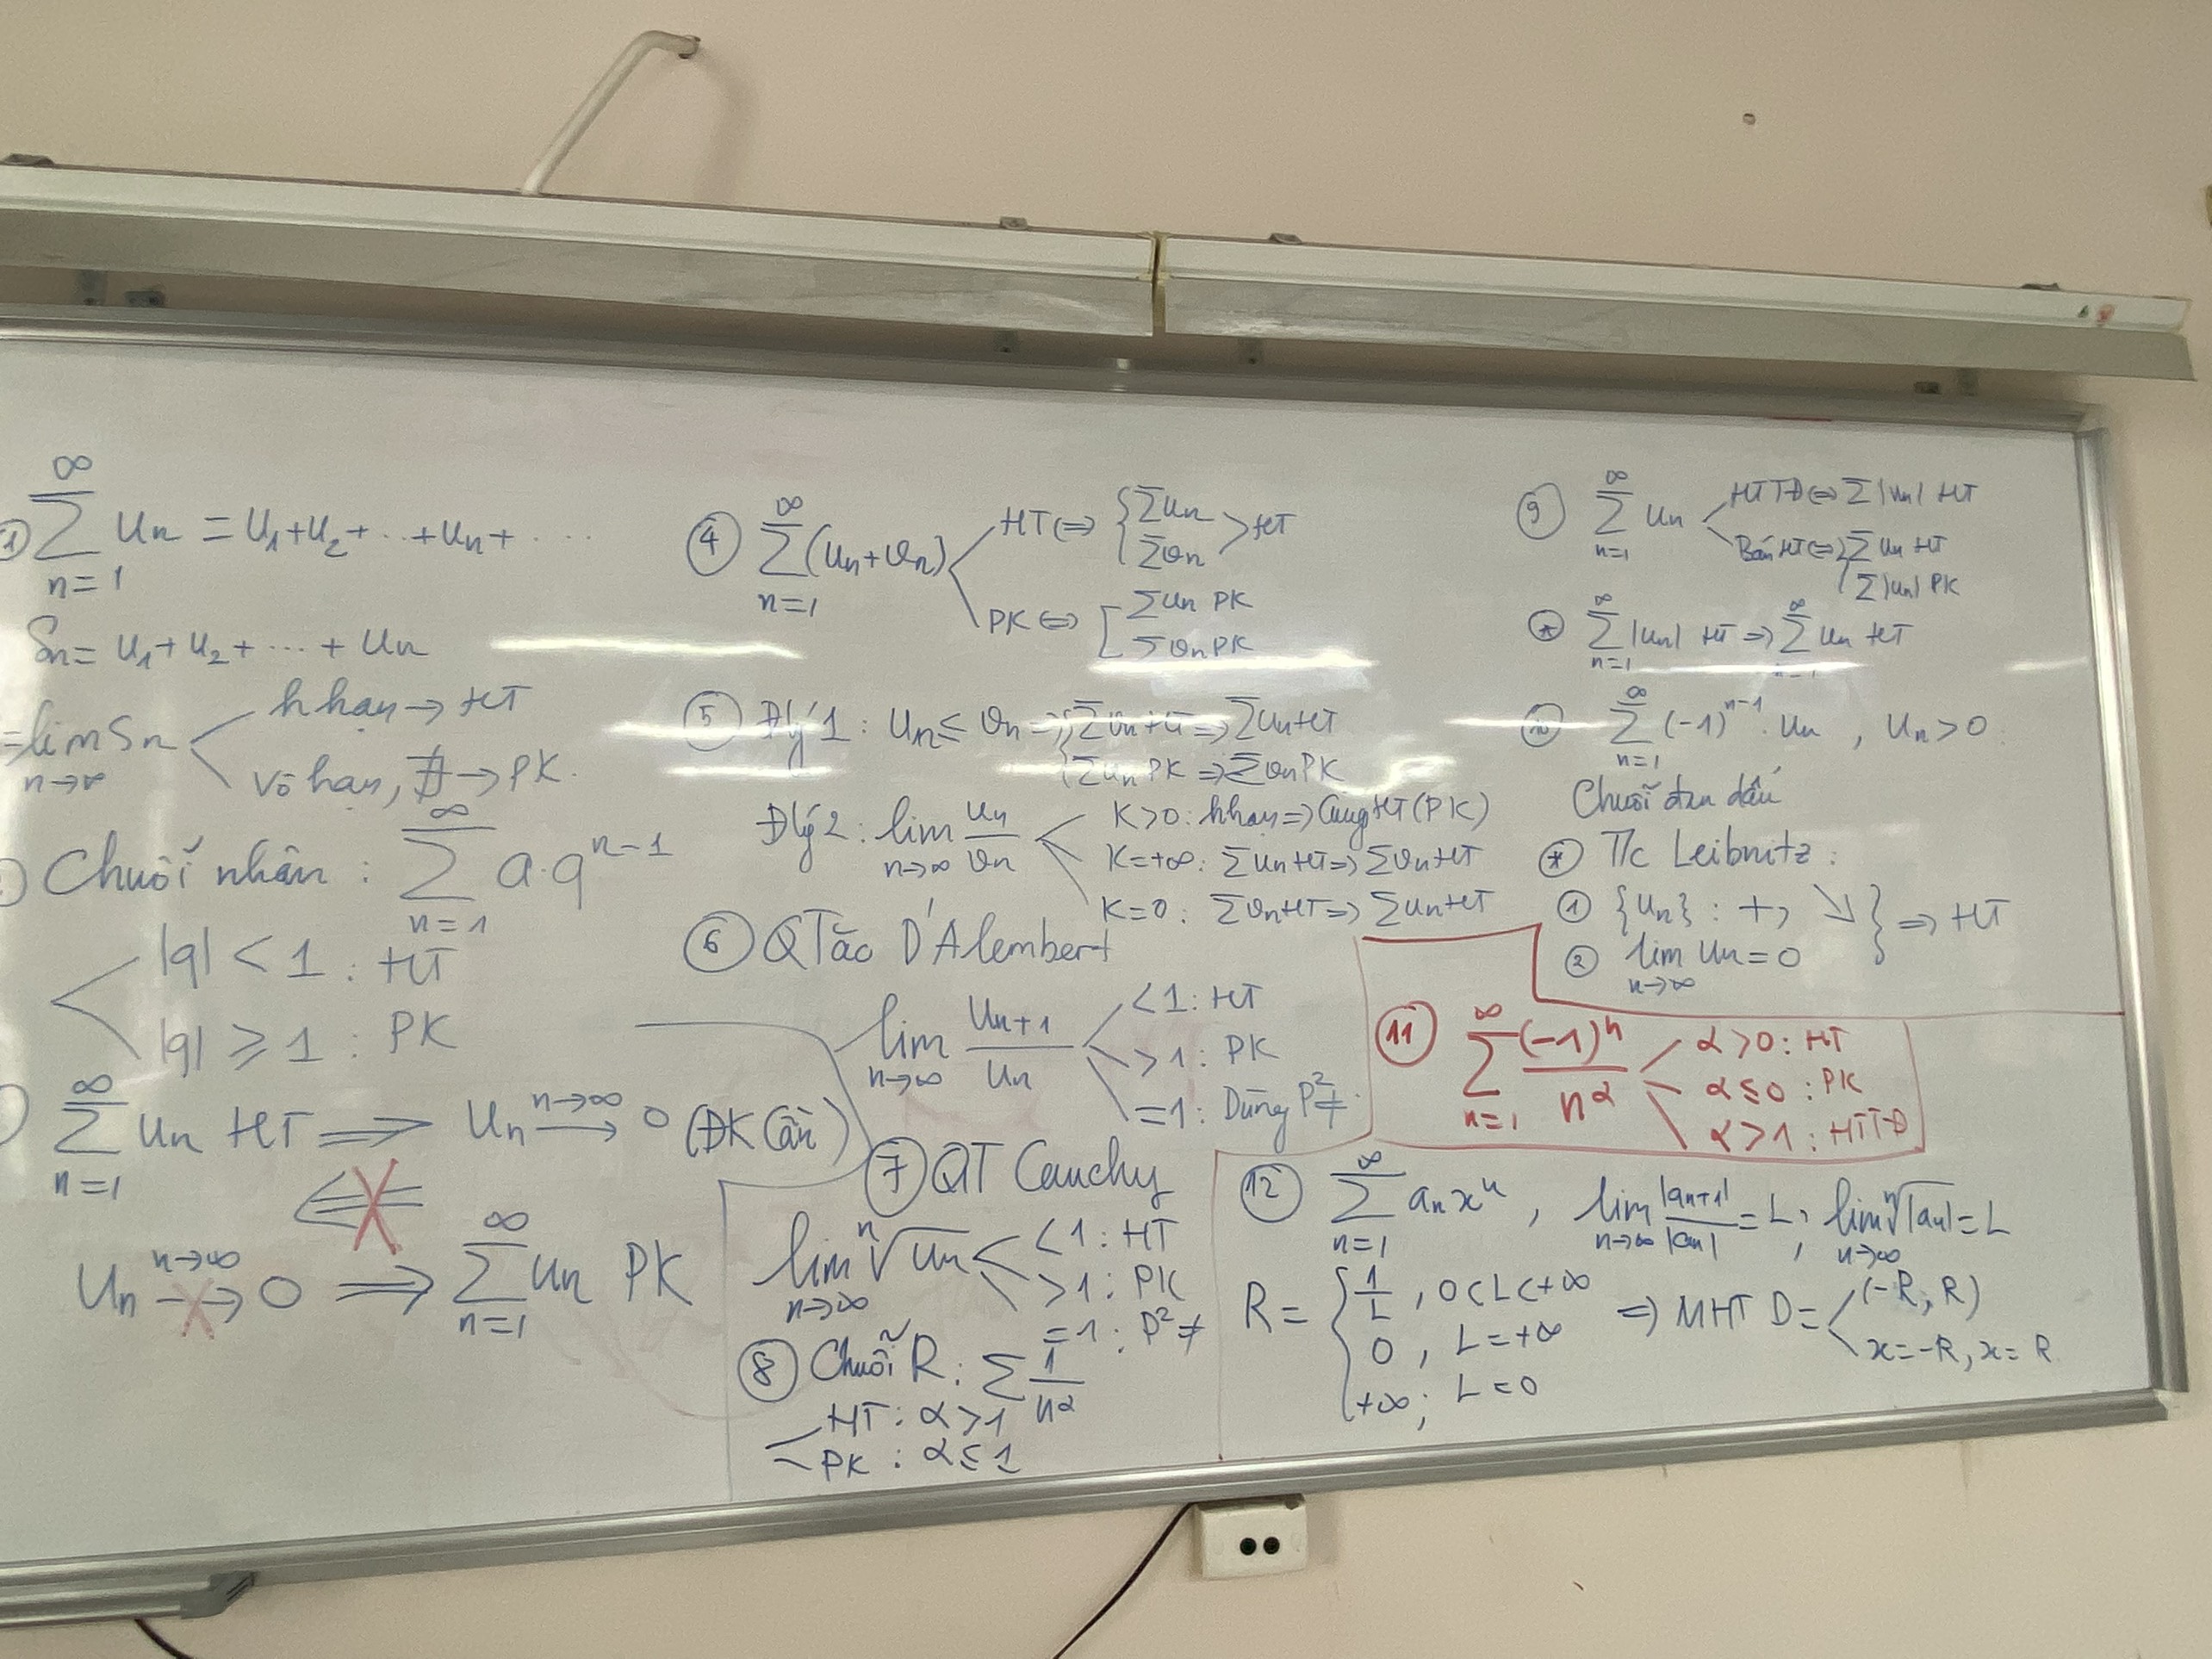 ① ∞∑n=1 un = u1+u2+...+un+...
Sn= u1+u2+...+un
=lim n→∞ Sn < hhạn → HT
vô hạn, ∄ → PK.
Chuỗi nhân : ∞∑n=1 a.q^n-1
|q| < 1 : HT
|q| ≥ 1 : PK
∞∑n=1 un HT ⟹ un n→∞→ 0 (ĐK Cần)
⟸
un n→∞↛ 0 ⟹ ∞∑n=1 un PK
④ ∞∑n=1 (un+vn) < HT ⇔ { ∑un ∑vn > HT
PK ⇔ [ ∑un PK
∑vn PK
⑤ Đlý 1 : un ≤ vn ⇒ { ∑vn HT ⇒ ∑un HT
{ ∑un PK ⇒ ∑vn PK
Đlý 2 : lim n→∞ un/vn < K>0: hhạn ⇒ Cùng HT (PK)
K=+∞: ∑un HT ⇒ ∑vn HT
K=0: ∑vn HT ⇒ ∑un HT
⑥ QTắc D'Alembert
lim n→∞ un+1/un < <1: HT
>1: PK
=1: Dùng P²≠
⑦ QT Cauchy
lim n→∞ ⁿ√un < <1: HT
>1: PK
=1: P²≠
⑧ Chuỗi R: ∑ 1/n^α
HT: α>1
PK: α≤1
⑨ ∞∑n=1 un < HTTĐ ⇔ ∑|un| HT
Bán HT ⇔ { ∑un HT
∑|un| PK
⊛ ∞∑n=1 |un| HT ⇒ ∞∑n=1 un HT
⑩ ∞∑n=1 (-1)^n-1 . un , un>0
Chuỗi đan dấu
⊛ T/c Leibnitz:
① {un}: +, ↘ } ⇒ HT
② lim n→∞ un=0
⑪ ∞∑n=1 (-1)^n/n^α < α>0: HT
α≤0: PK
α>1: HTTĐ
⑫ ∞∑n=1 anx^n , lim n→∞ |an+1|/|an| = L, lim n→∞ ⁿ√|an| = L
R = { 1/L , 0<L<+∞ ⇒ MHT D = < (-R, R)
0 , L=+∞ x=-R, x=R
+∞; L=0